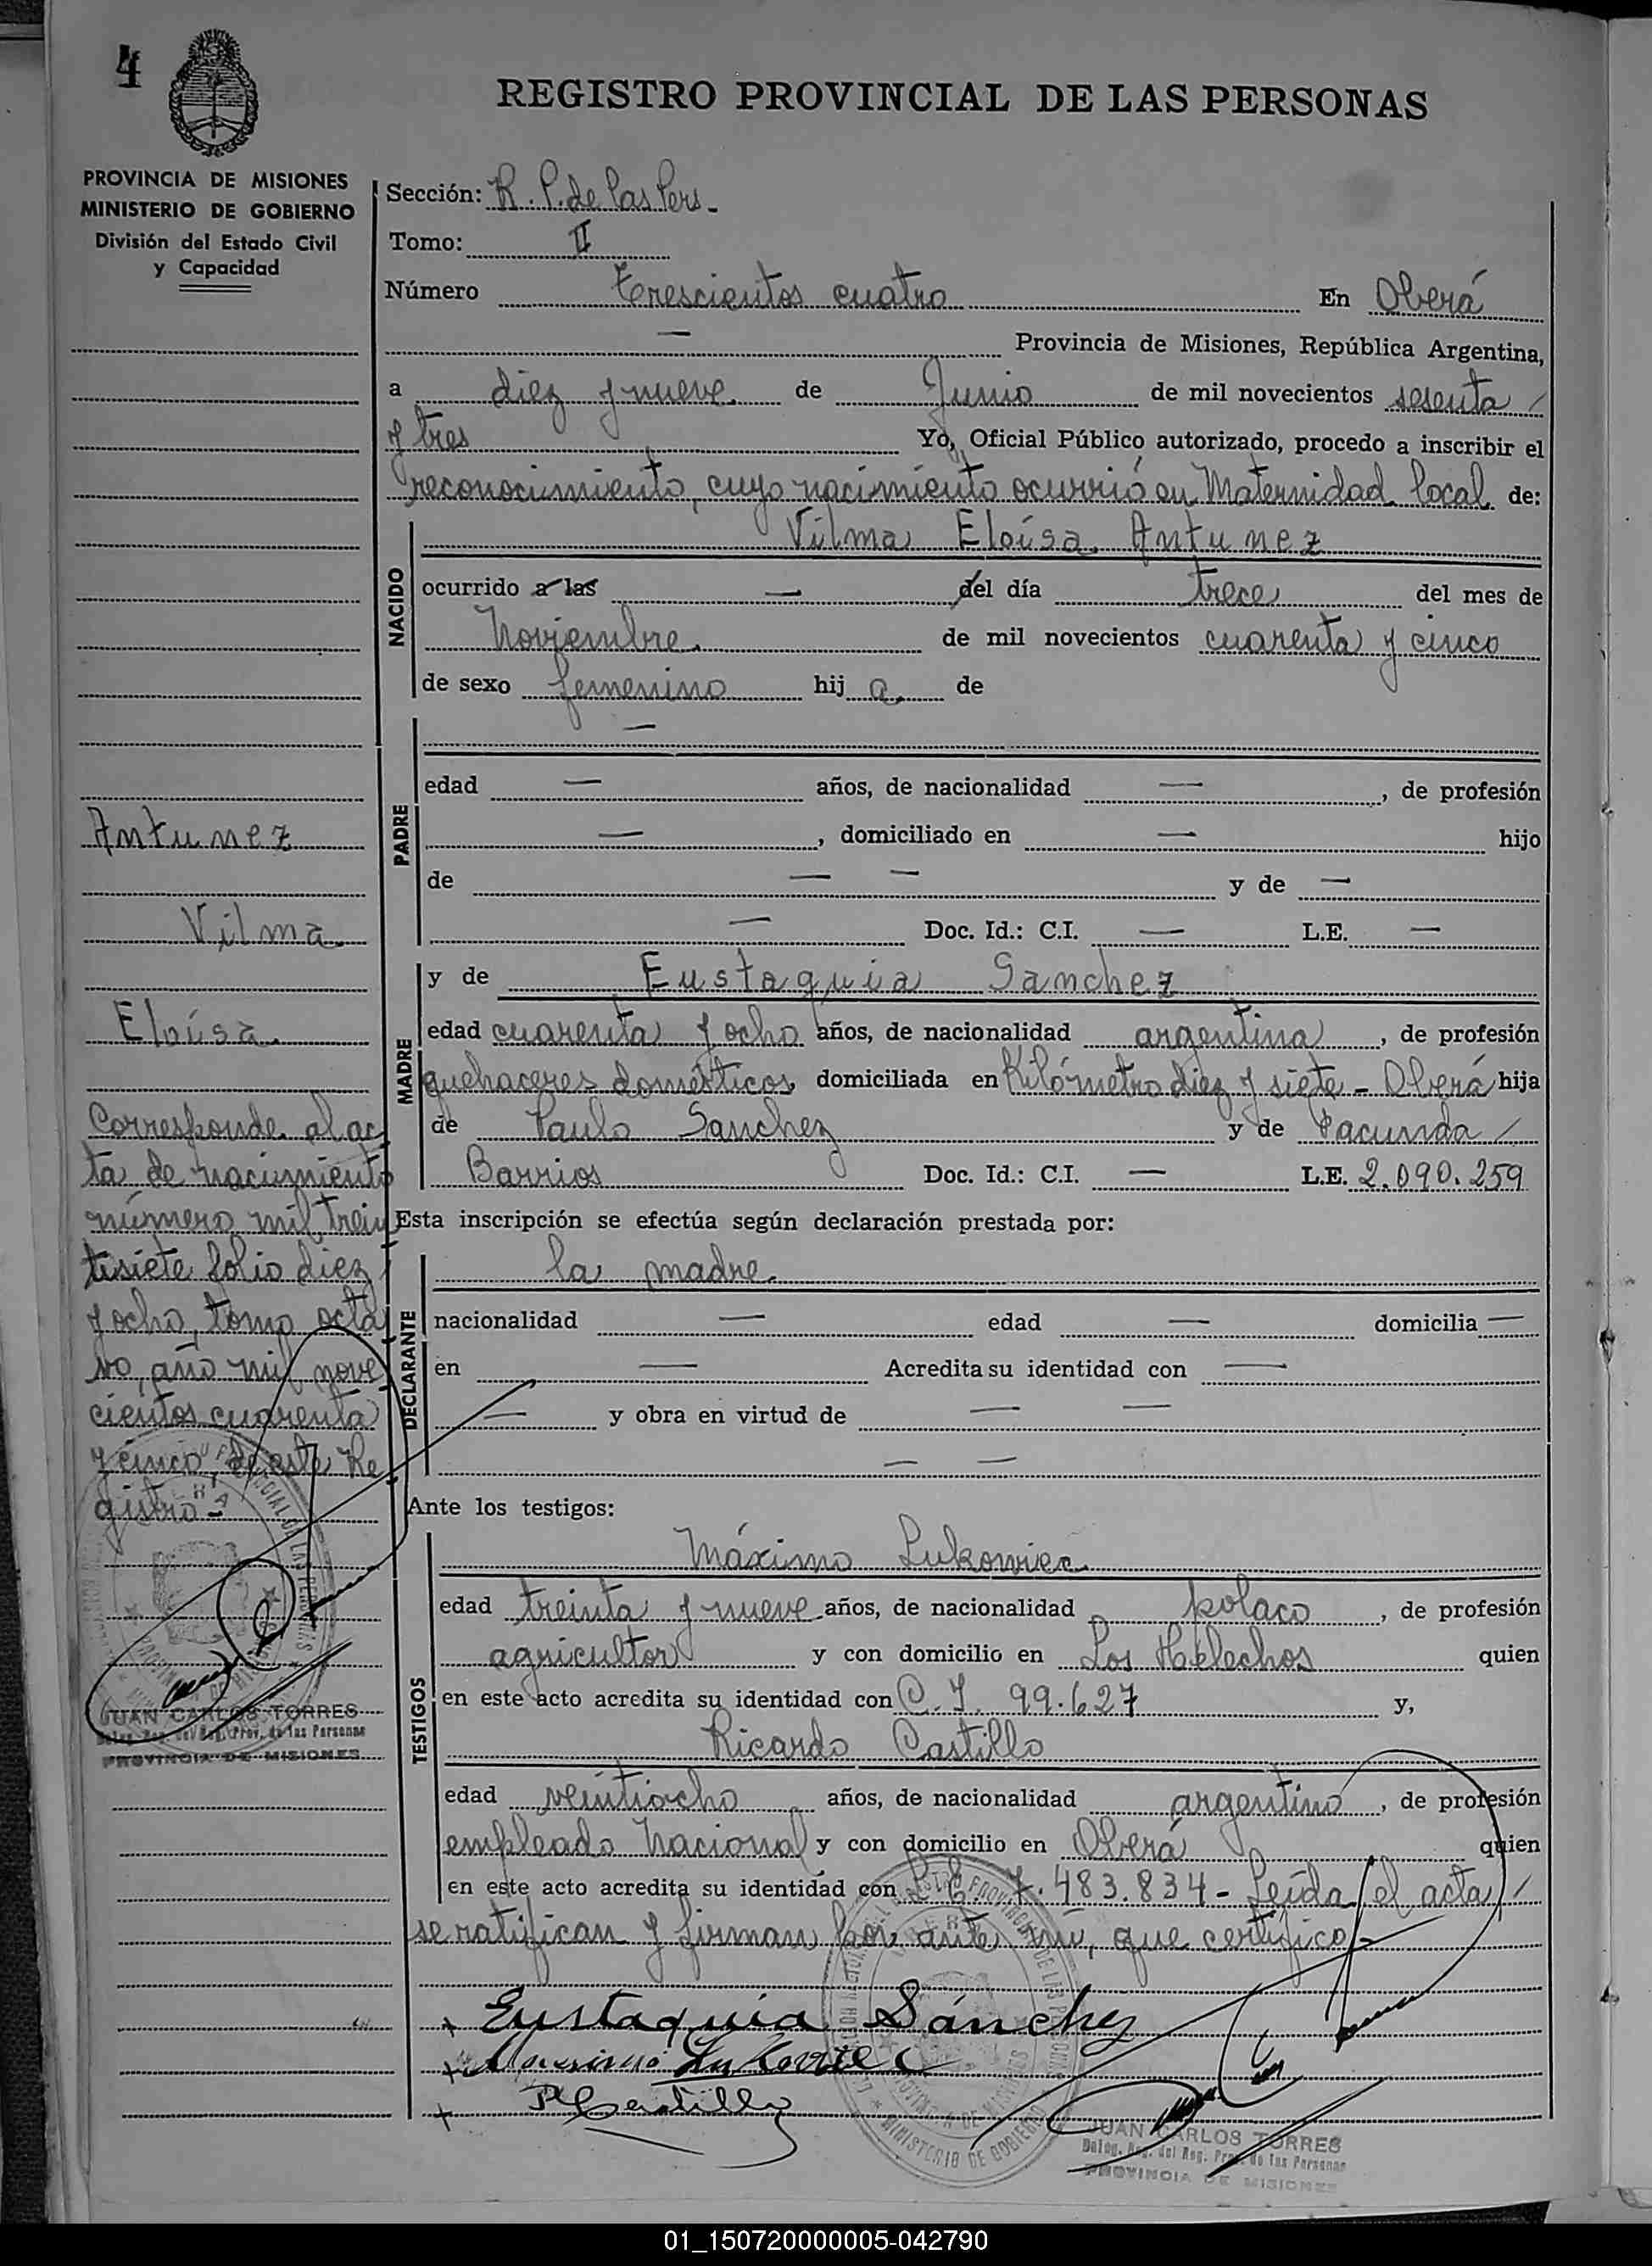 4
REGISTRO PROVINCIAL DE LAS PERSONAS
PROVINCIA DE MISIONES
MINISTERIO DE GOBIERNO
División del Estado Civil
y Capacidad
Sección: R. P. de las Pers.
Tomo: II
Número trescientos cuatro En Oberá
— Provincia de Misiones, República Argentina,
a diez y nueve de Junio de mil novecientos sesenta /
y tres Yo, Oficial Público autorizado, procedo a inscribir el
reconocimiento, cuyo nacimiento ocurrió en Maternidad local de:
NACIDO
Vilma Eloísa Antunez
ocurrido a las — del día trece del mes de
Noviembre de mil novecientos cuarenta y cinco
de sexo femenino hij a de
PADRE
—
edad — años, de nacionalidad —, de profesión
—, domiciliado en — hijo
de — — y de —
— Doc. Id.: C.I. — L.E. —
MADRE
y de Eustaquia Sanchez
edad cuarenta y ocho años, de nacionalidad argentina, de profesión
quehaceres domésticos domiciliada en Kilómetro diez y siete - Oberá hija
de Paulo Sanchez y de Facunda /
Barrios Doc. Id.: C.I. — L.E. 2.090.259
Esta inscripción se efectúa según declaración prestada por:
DECLARANTE
la madre
nacionalidad — edad — domicilia —
en — Acredita su identidad con —
— y obra en virtud de — —
— —
Ante los testigos:
TESTIGOS
Máximo Lukowiec
edad treinta y nueve años, de nacionalidad polaco, de profesión
agricultor y con domicilio en Los Helechos quien
en este acto acredita su identidad con C. I. 99.627 y,
Ricardo Castillo
edad veintiocho años, de nacionalidad argentino, de profesión
empleado Nacional y con domicilio en Oberá quien
en este acto acredita su identidad con L. E. 7.483.834 - Leída el acta /
se ratifican y firman por ante mí, que certifico -
Eustaquia Sánchez
Maximo Lukowiec
R Castillo
JUAN CARLOS TORRES
Deleg. Reg. del Reg. Prov. de las Personas
PROVINCIA DE MISIONES
Antunez
Vilma
Eloísa
Corresponde al ac
ta de nacimiento
número mil trein
tisiete folio diez /
y ocho, tomo octa
vo, año mil nove
cientos cuarenta
y cinco, de este Re
gistro -
JUAN CARLOS TORRES
Deleg. Reg. del Reg. Prov. de las Personas
PROVINCIA DE MISIONES
01_150720000005-042790